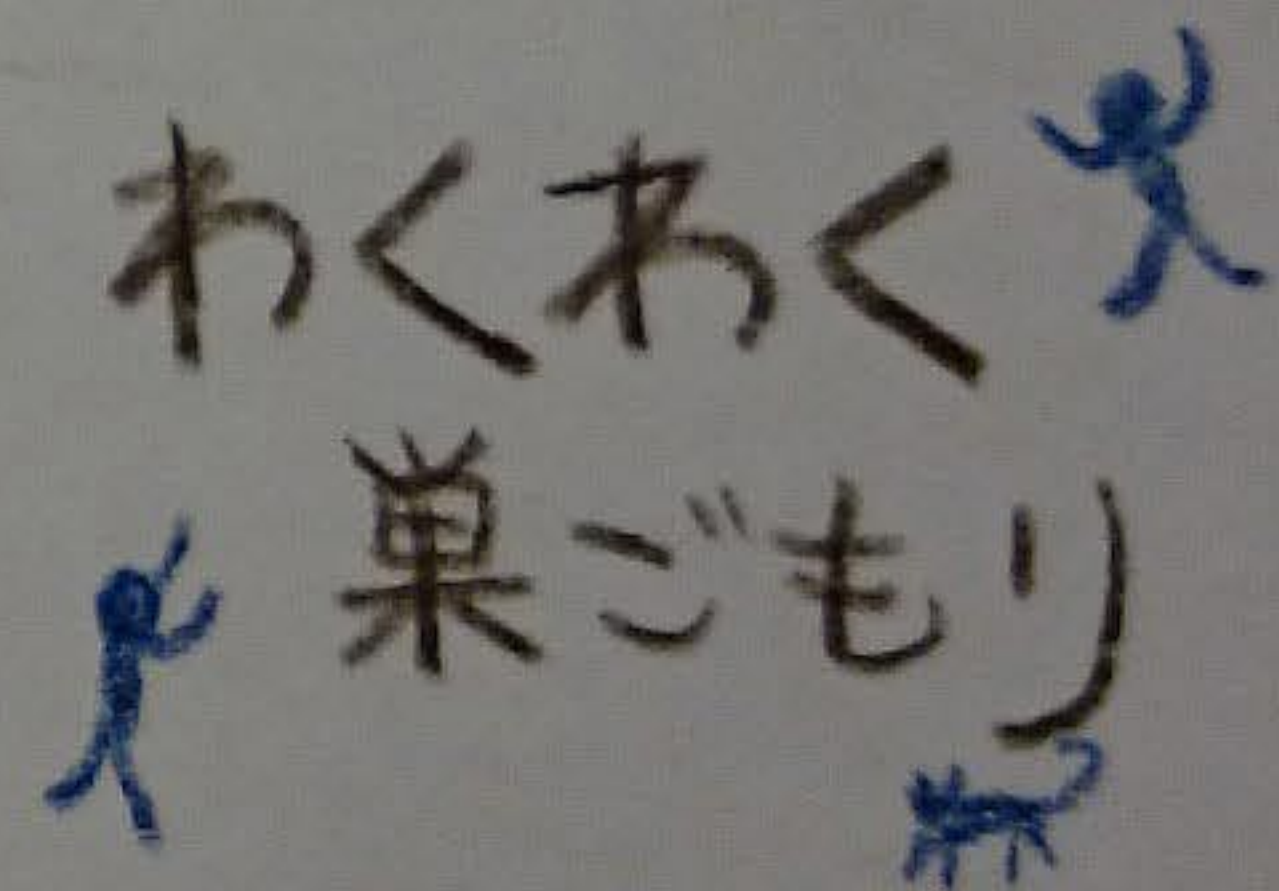 わくわく
巣ごもり